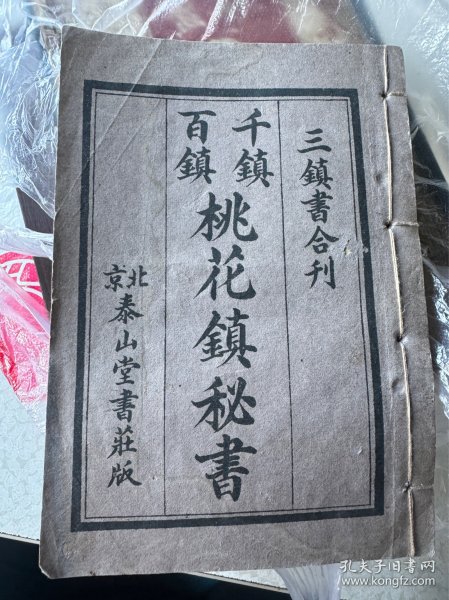 三鎮書合刊
千鎮
百鎮
桃花鎮秘書
北京
泰山堂書莊版
孔夫子旧书网
www.kongfz.com